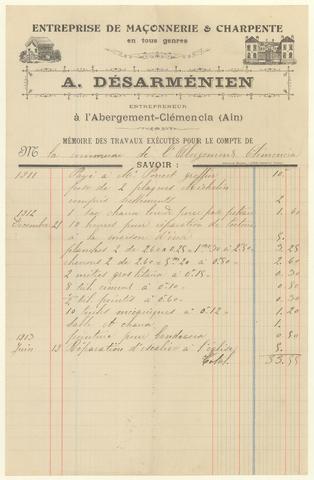 ENTREPRISE DE MAÇONNERIE & CHARPENTE
en tous genres
A. DÉSARMÉNIEN
ENTREPRENEUR
à l'Abergement-Clémencia (Ain)
MÉMOIRE DES TRAVAUX EXÉCUTÉS POUR LE COMPTE DE
M la commune de l'Abergement Clemencia
SAVOIR :
1911 Payé à Mr greffier 10.
pose de 2 plaques Michelin
compris scellements 2
1912 1 sac chaux lourde 1. 60
Decembre 21 10 heures pour réparation de toiture
à la maison 5.
planches 2 de 2.60 3.25
chevrons 2 de 2.60 à 0.50 2.60
2 mètres gros liteau à 0.15 0.30
8 cimint à 0.10 0.80
½ pointes à 0.60 0.30
10 tuiles mécaniques à 0.12 1.20
sable et chaux 1.
1913 fourniture pour 0.50
Juin 13 Réparation d'escalier à l'église 5.
Total 33.55